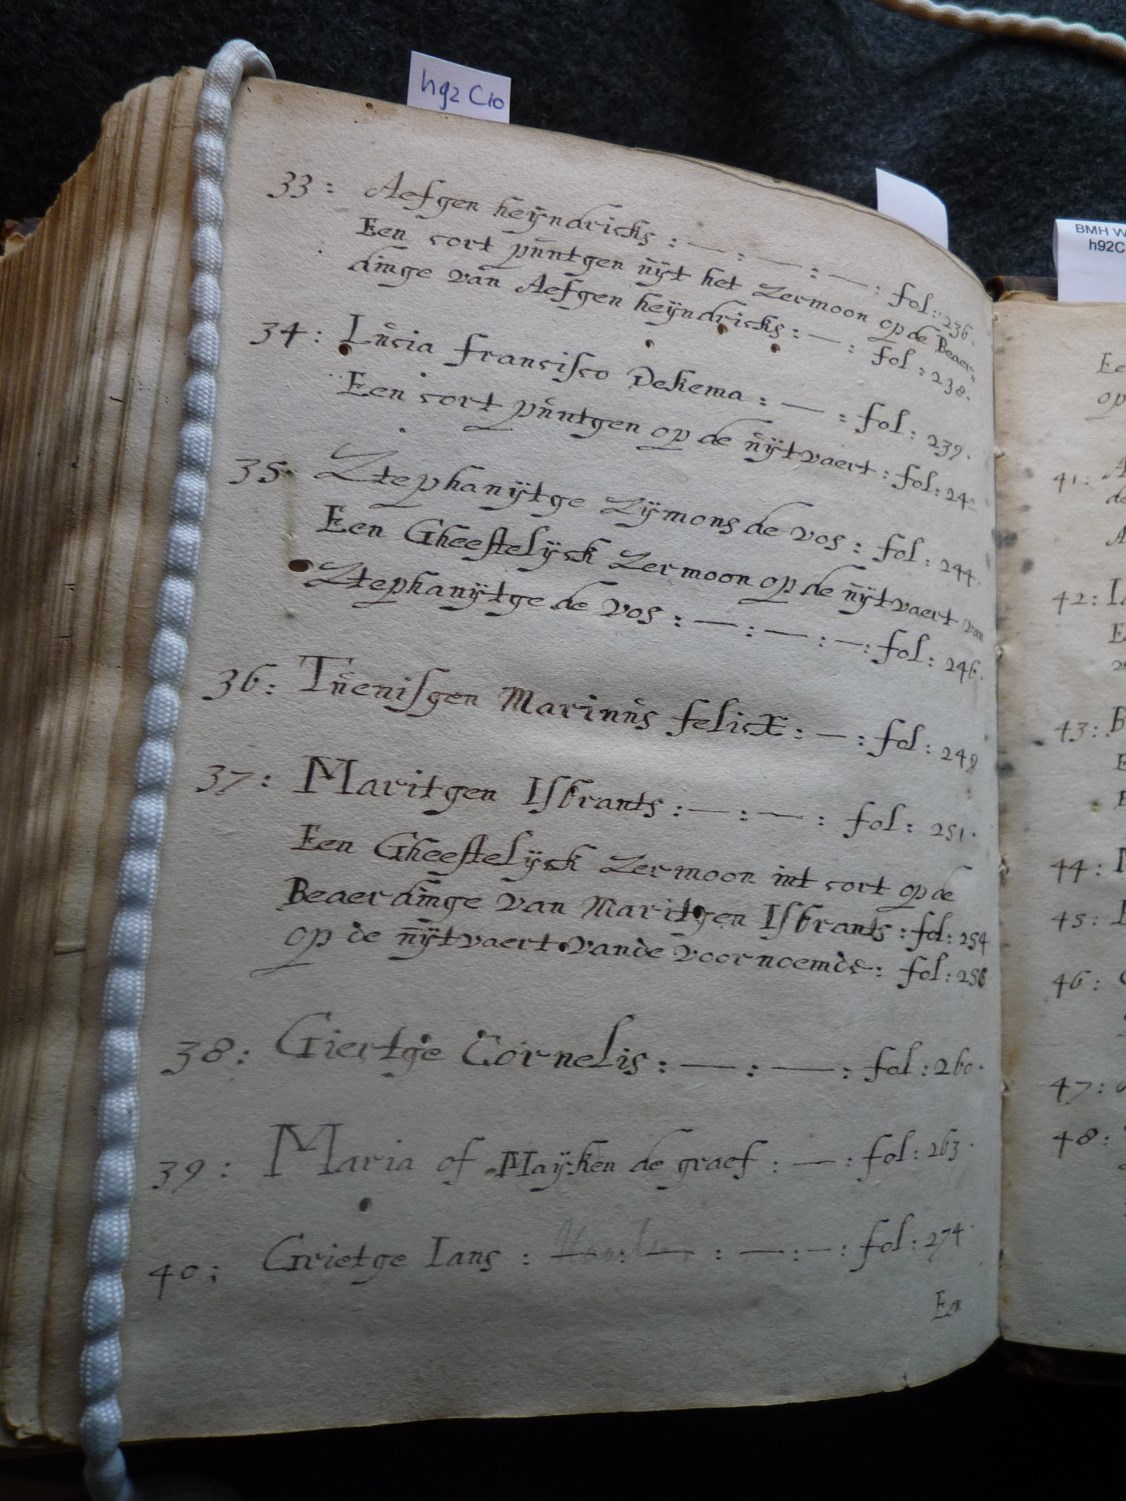 h92 C10
BMH W
h92C
33: Aefgen heÿndricks: — : — : — : fol: 236.
Een cort puntgen uÿt het Zermoon op de Beaer=
dinge van Aefgen heÿndricks: — : fol: 238.
34: Lucia francisco Dekema: — : fol: 239.
Een cort puntgen op de uÿtvaert: fol: 242
35: Ztephanÿtge Zÿmons de vos: fol: 244.
Een Gheestelÿck Zermoon op de uÿtvaert van
Ztephanÿtge de vos: — : — : — : fol: 246.
36: Tuenisgen Marinus felicx: — : fol: 249
37: Maritgen Isbrants: — : — : fol: 251.
Een Gheestelÿck Zermoon int cort op de
Beaerdinge van Maritgen Isbrants: fol: 254
op de uÿtvaert vande voornoemde: fol: 256
38: Giertge Cornelis: — : — : fol: 260.
39: Maria of Maÿken de graef: — : fol: 263.
40: Grietge Ians: — : — : — : — : fol: 274
Een
41:
42:
43:
44:
45:
46:
47:
48: